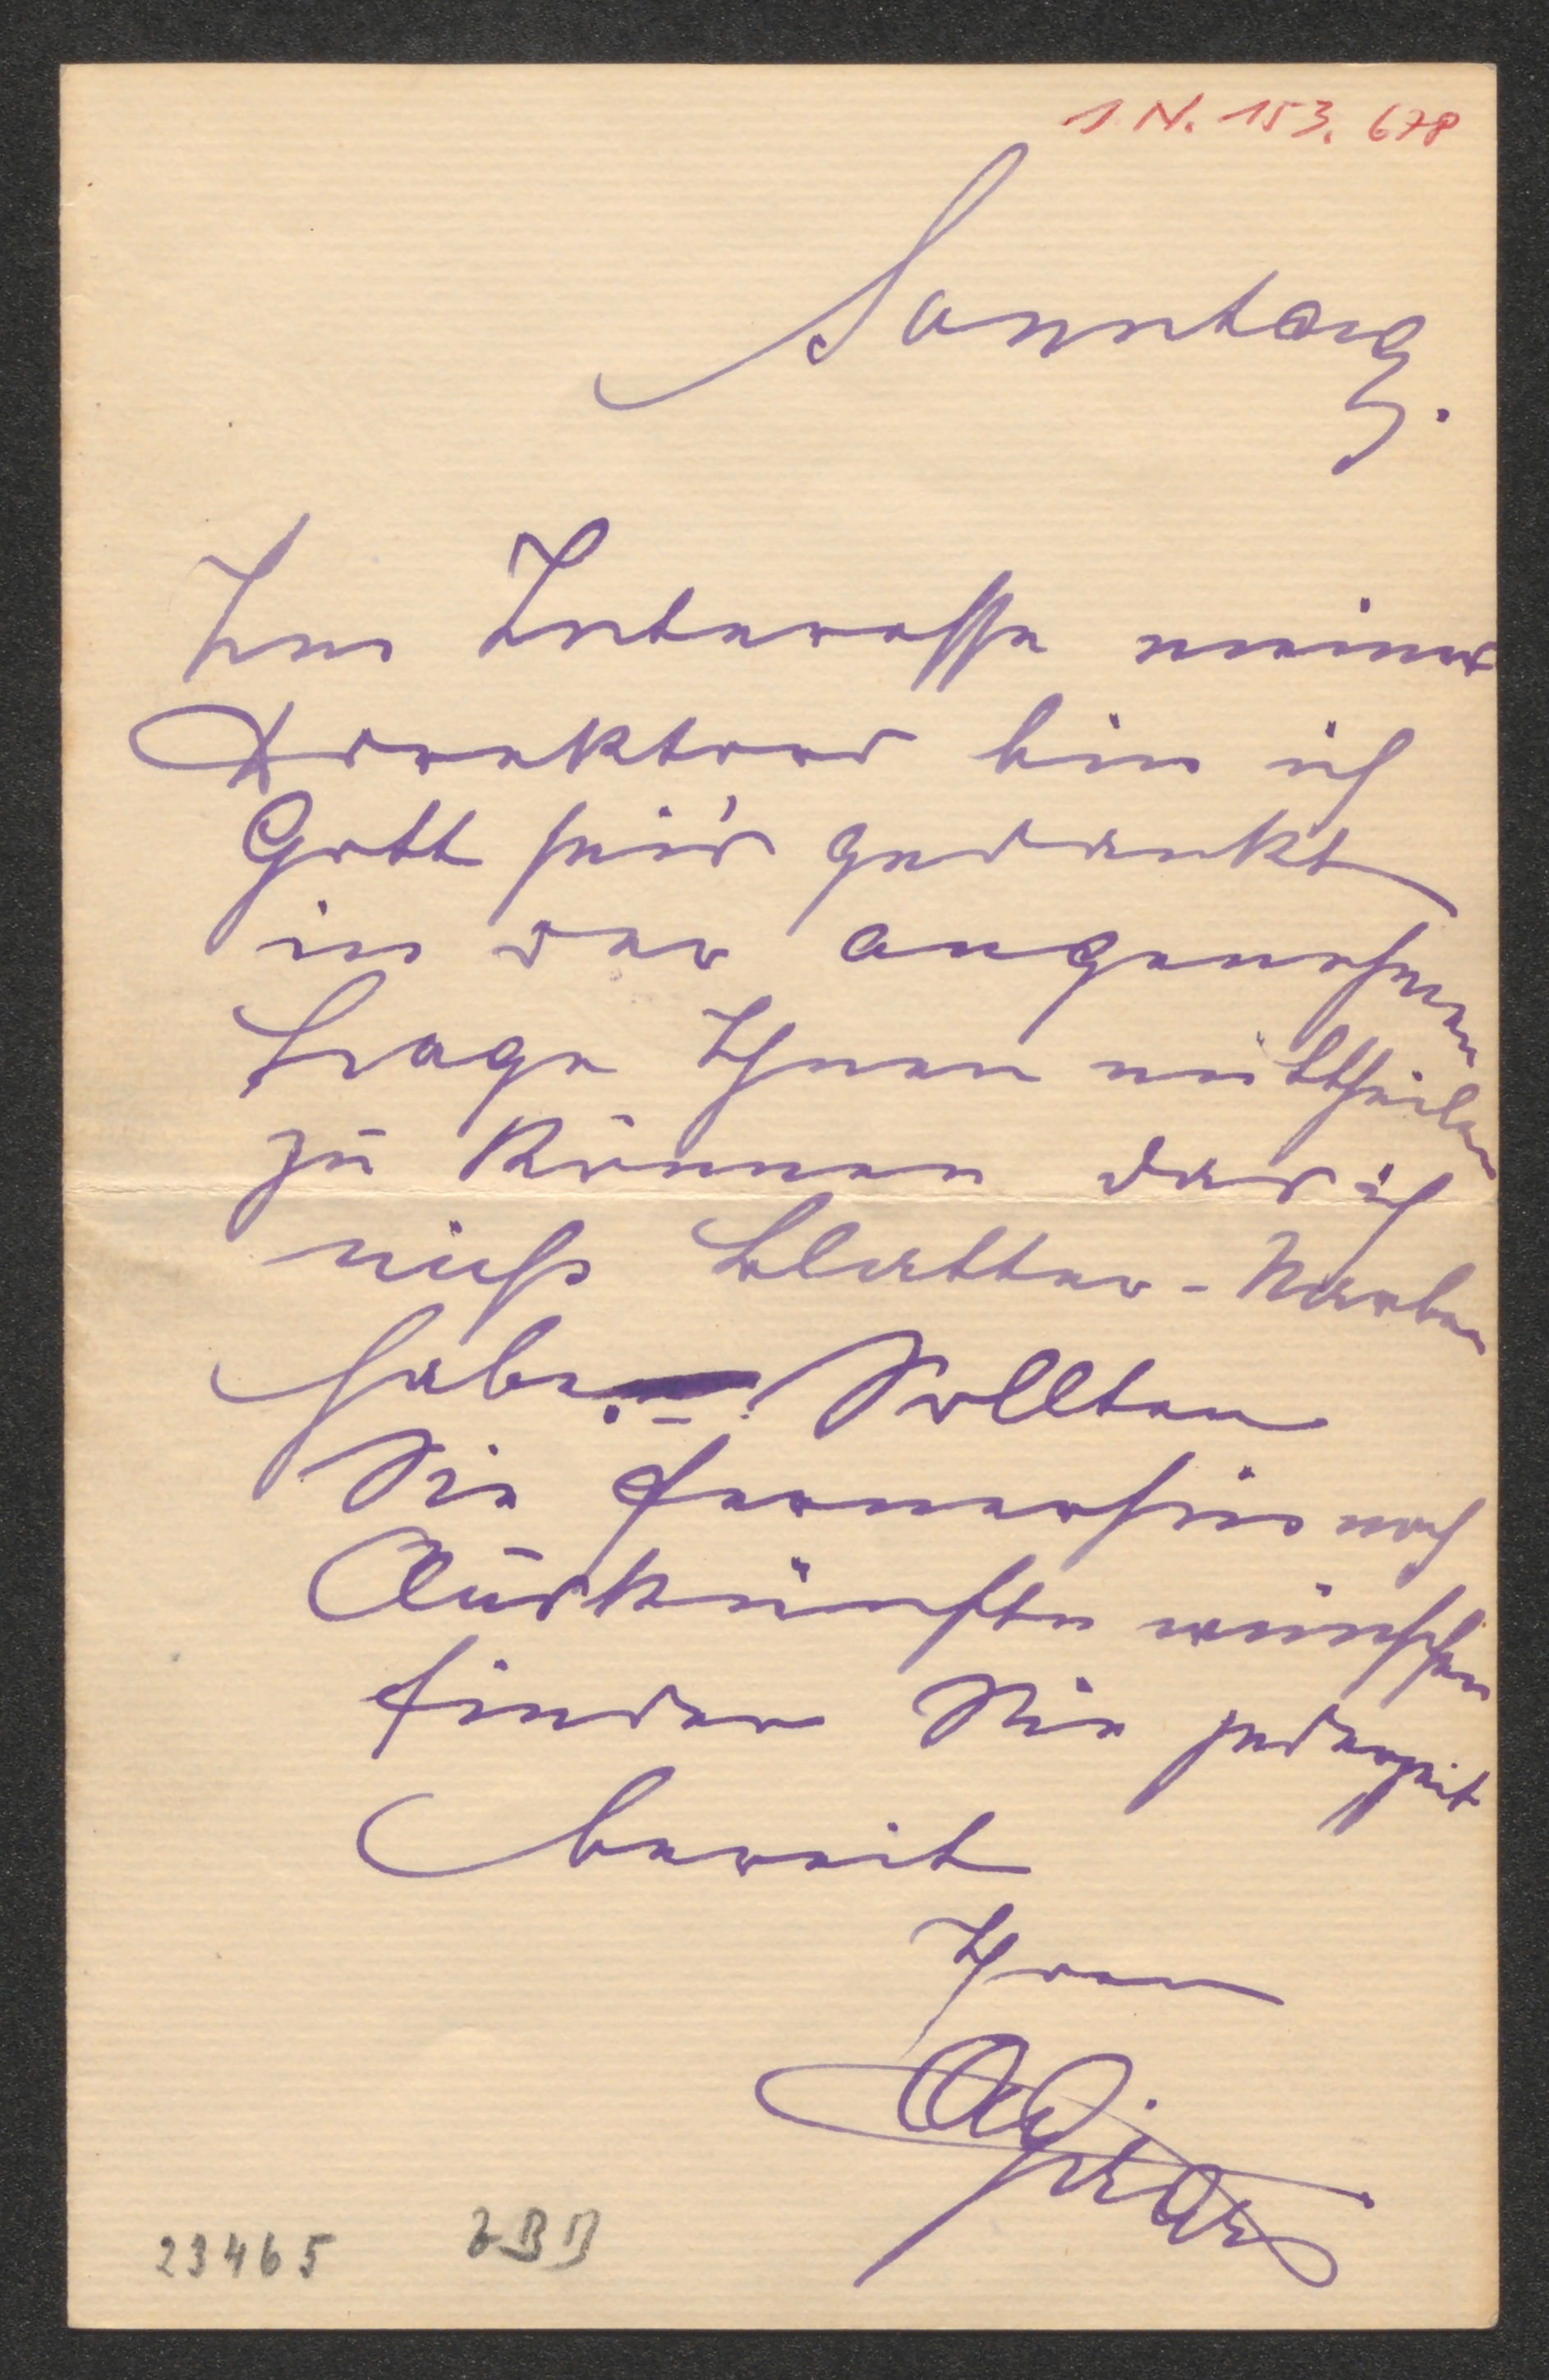 I. N. 153.678
Sonntag.
Im Interesse meiner
bin ich
Gott sei's gedankt
in der angenehmen
Lage Ihnen mittheilen
zu können das ich
nicht Blatter-Narben
habe. Sollten
Sie fernerhin noch
Auskünfte wünschen
finden Sie jederzeit
bereit
Ihren
23465